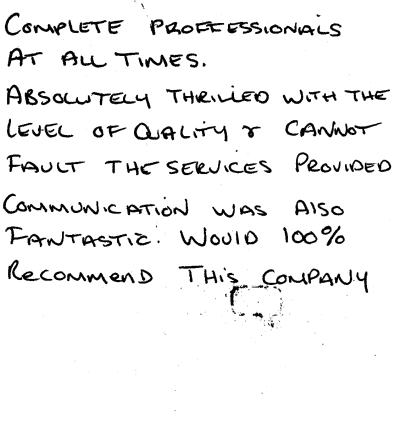 COMPLETE PROFFESSIONALS
AT ALL TIMES.
ABSOLUTELY THRILLED WITH THE
LEVEL OF QUALITY & CANNOT
FAULT THE SERVICES PROVIDED
COMMUNICATION WAS ALSO
FANTASTIC. WOULD 100%
RECOMMEND THIS COMPANY